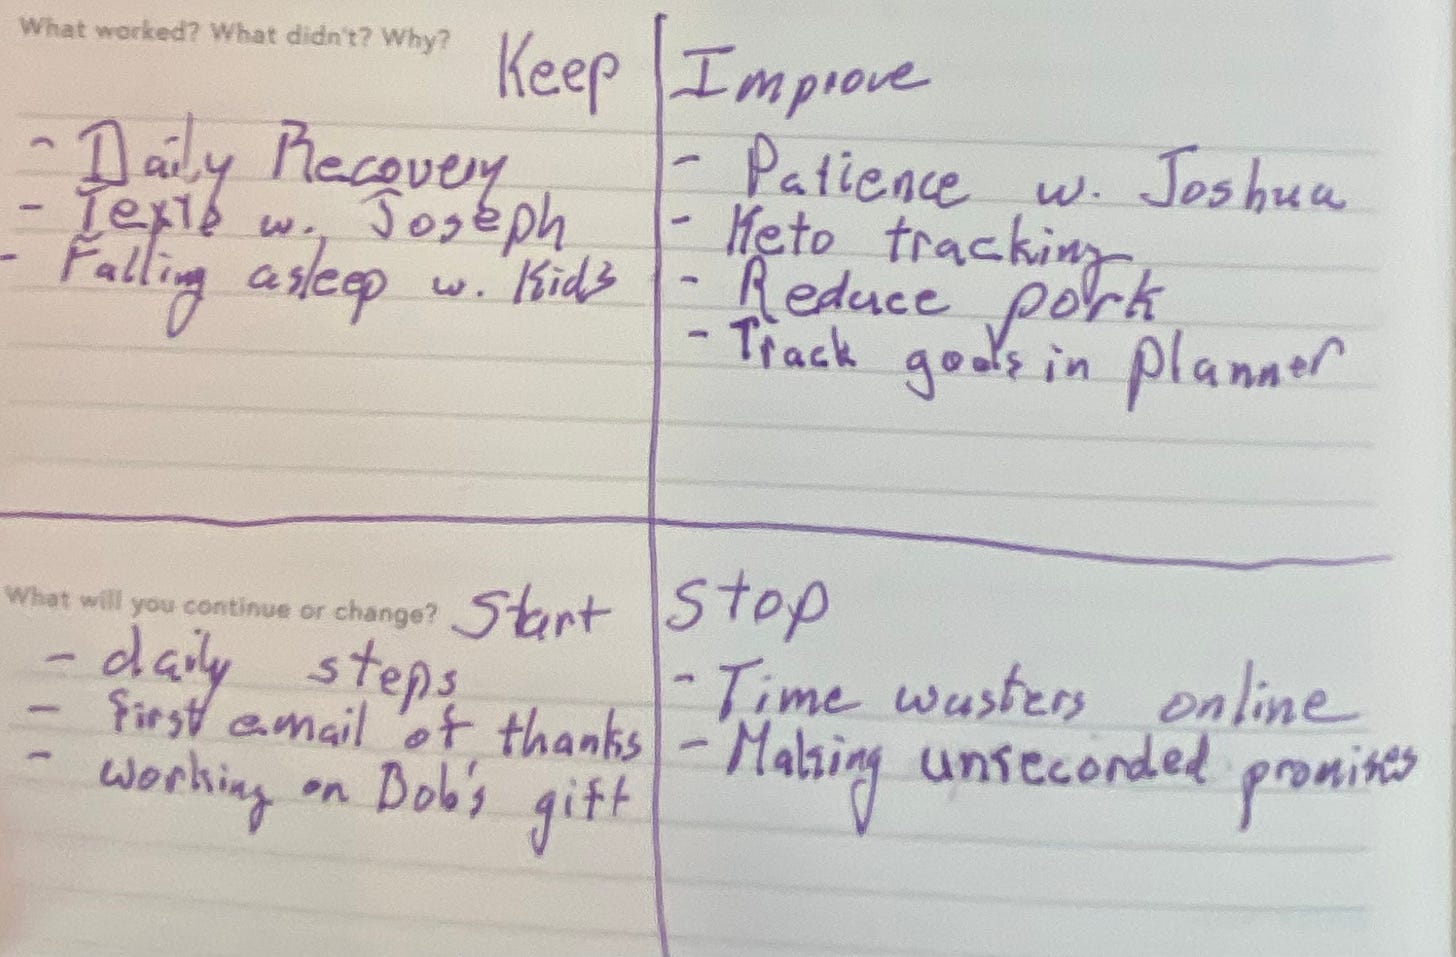 What worked? What didn't? Why?
Keep
- Daily Recovery
- Texts w. Joseph
- Falling asleep w. Kids
Improve
- Patience w. Joshua
- Keto tracking
- Reduce pork
- Track goals in planner
What will you continue or change?
Start
- daily steps
- first email of thanks
- working on Bob's gift
Stop
- Time wasters online
- Making unrecorded promises